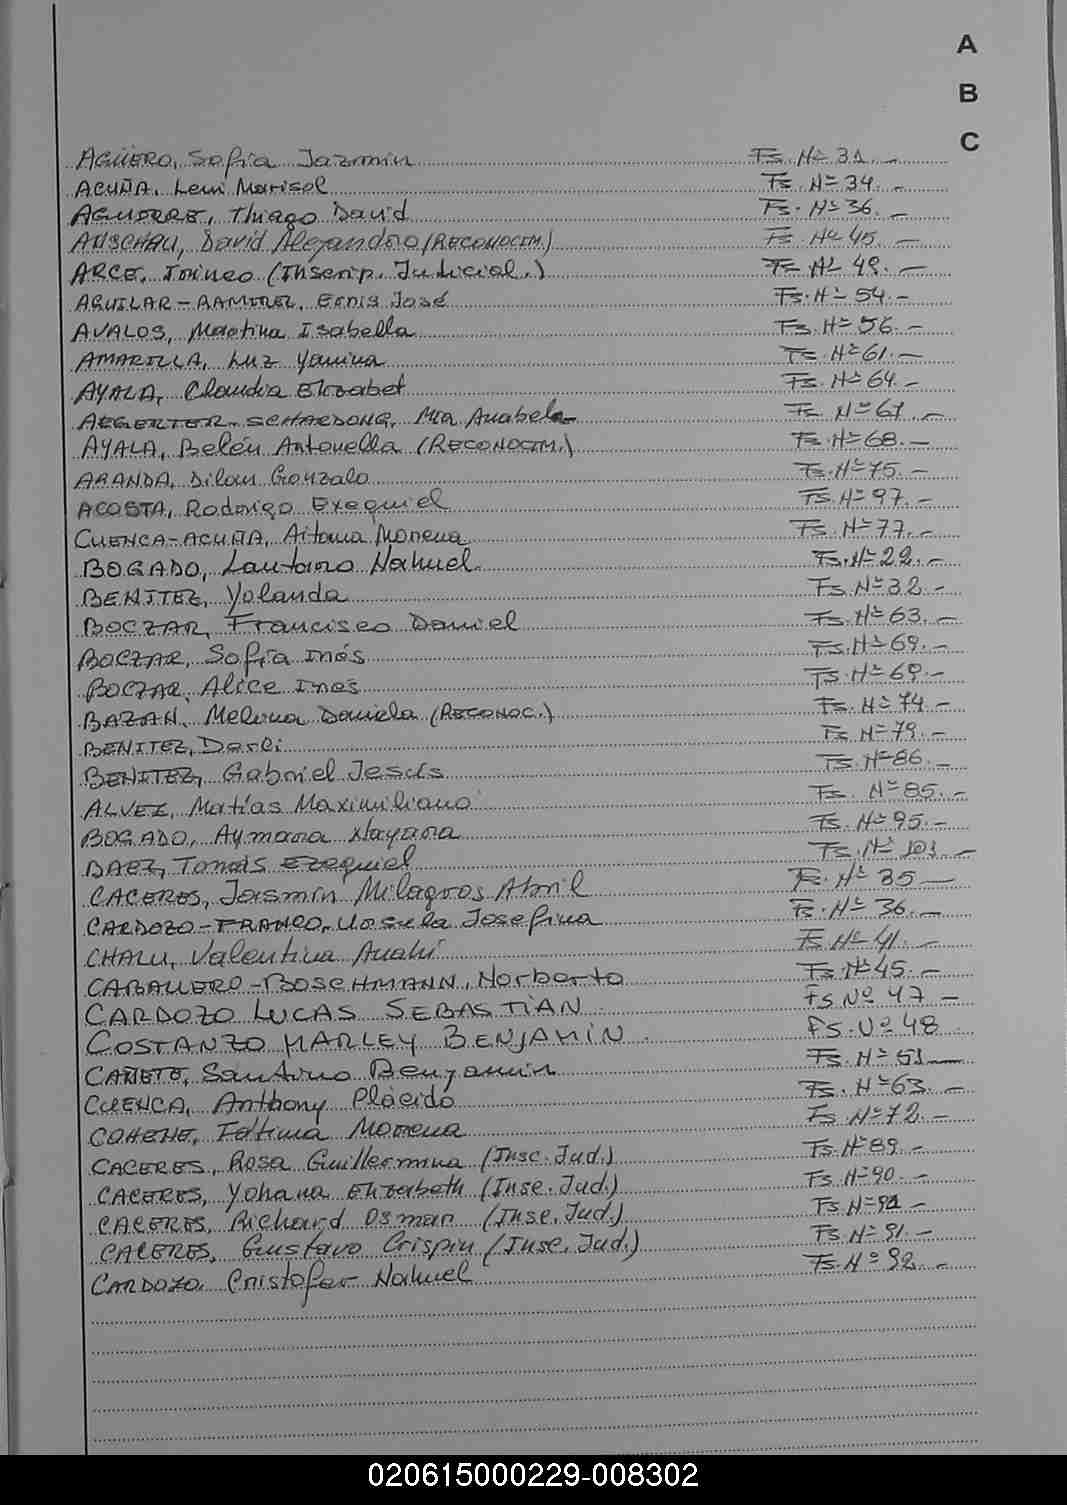 A
B
C
AGÜERO, Sofía Jazmín Fs. Nº 31.-
ACUÑA, Leni Marisol Fs. Nº 34.-
AGUIRRE, Thiago David Fs. Nº 36.-
ANSCHAU, David Alejandro (RECONOCIM.) Fs Nº 45.-
ARCE, Irineo (Inscrip. Judicial.) Fs Nº 49.-
AGUILAR-RAMIREZ, Ernis José Fs. Nº 54.-
AVALOS, Martina Isabella Fs. Nº 56.-
AMARILLA, Luz Yanina Fs. Nº 61.-
AYALA, Claudia Elizabet Fs. Nº 64.-
AEGERTER-SCHAEDONG, Mia Anabela Fs. Nº 67.-
AYALA, Belén Antonella (RECONOCIM.) Fs. Nº 68.-
ARANDA, Dilan Gonzalo Fs. Nº 75.-
ACOSTA, Rodrigo Exequiel Fs. Nº 97.-
CUENCA-ACUÑA, Aitana Morena Fs. Nº 77.-
BOGADO, Lautaro Nahuel. Fs. Nº 22.-
BENITEZ, Yolanda Fs. Nº 32.-
BOCZAR, Francisco Daniel Fs. Nº 63.-
BOCZAR, Sofía Inés Fs. Nº 69.-
BOCZAR, Alice Inés Fs. Nº 69.-
BAZAN, Melina Daniela (RECONOC.) Fs. Nº 74.-
BENITEZ, Darli Fs. Nº 79.-
BENITEZ, Gabriel Jesús Fs. Nº 86.-
ALVEZ, Matías Maximiliano Fs. Nº 85.-
BOGADO, Aymara Nayara Fs. Nº 95.-
BAEZ, Tomás Ezequiel Fs. Nº 101.-
CACERES, Jasmín Milagros Abril Fs. Nº 35.-
CARDOZO-FRANCO, Ursula Josefina Fs. Nº 36.-
CHALU, Valentina Anahí Fs Nº 41.-
CABALLERO-BOSCHMANN, Norberto Fs. Nº 45.-
CARDOZO LUCAS SEBASTIAN Fs Nº 47 -
COSTANZO MARLEY BENJAMIN. Fs. Nº 48
CAÑETE, Santino Benjamin Fs. Nº 51.-
CUENCA, Anthony Plácido Fs. Nº 63.-
COHENE, Fátima Morena Fs Nº 72.-
CACERES, Rosa Guillermina (Insc. Jud.) Fs. Nº 89.-
CACERES, Yohana Elizabeth (Insc. Jud.) Fs. Nº 90.-
CACERES, Richard Osmar (Insc. Jud.) Fs. Nº 91.-
CACERES, Gustavo Crispin (Insc. Jud.) Fs. Nº 91.-
CARDOZO, Cristofer Nahuel Fs. Nº 92.-
020615000229-008302